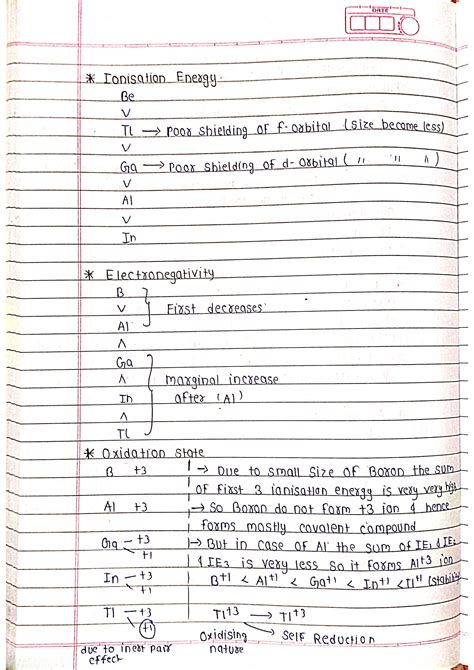 DATE
* Ionisation Energy
Be
V
Tl → Poor shielding of f-orbital (size become less)
V
Ga → Poor shielding of d-orbital ( " " " )
V
Al
V
In
* Electronegativity
B
V First decreases
Al
Λ
Ga
Λ Marginal increase
In after (Al)
Λ
Tl
* Oxidation state
B +3 → Due to small size of Boron the sum
of first 3 ionisation energy is very very high
Al +3 → So Boron do not form +3 ion & hence
forms mostly covalent compound
Ga +3 → But in case of Al the sum of IE1 & IE2
+1 & IE3 is very less so it forms Al+3 ion
In +3 B+1 < Al+1 < Ga+1 < In+1 < Tl+1 (stability
+1
Tl +3 Tl+3 → Tl+1
+1 Oxidising → Self Reduction
due to inert pair nature
effect